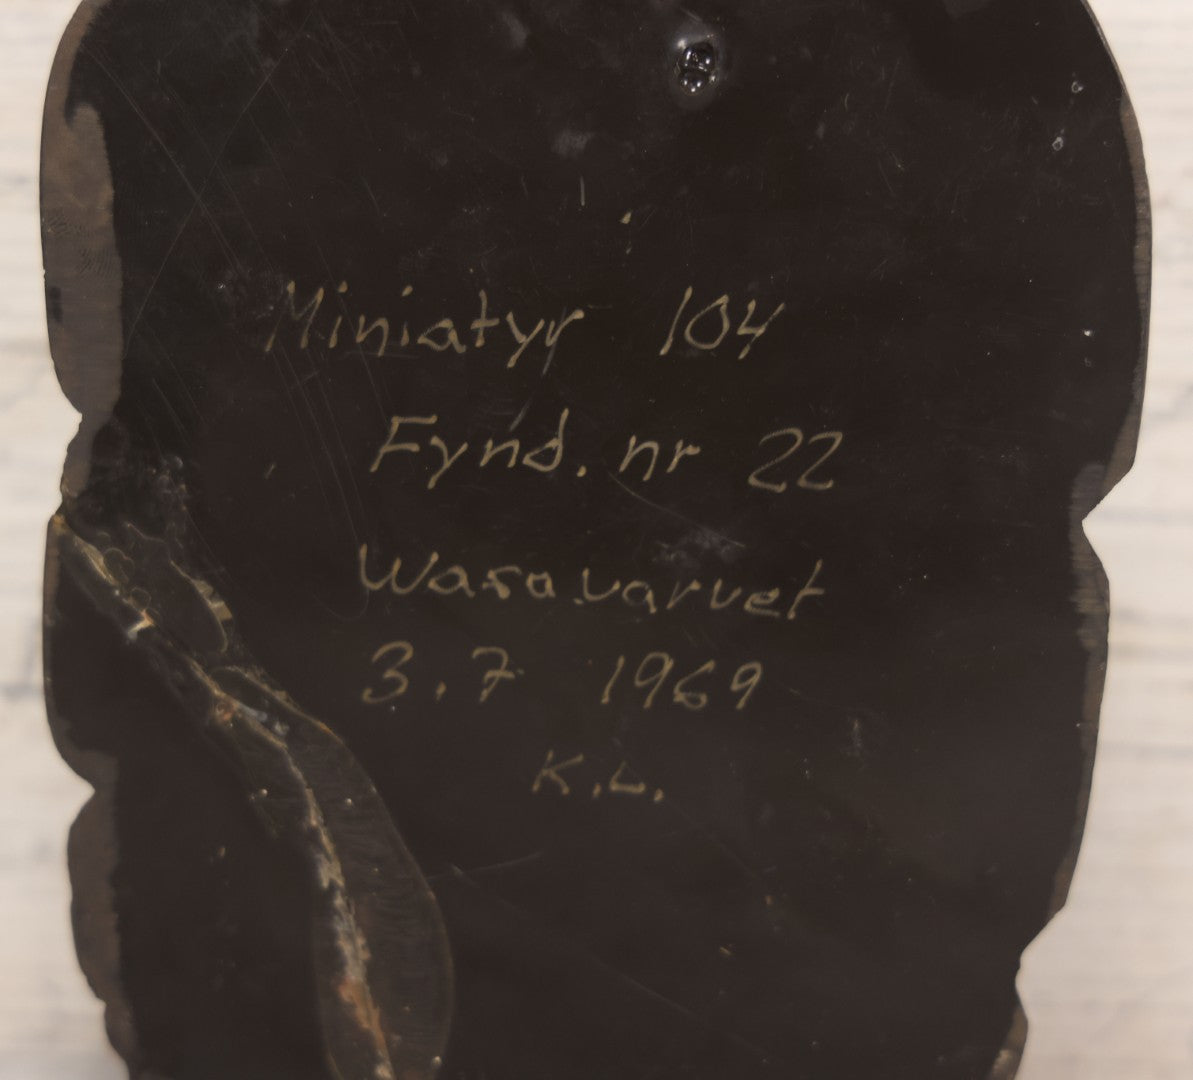 Miniatyr 104
Fynd. nr 22
Wasavarvet
3.7 1969
K.L.